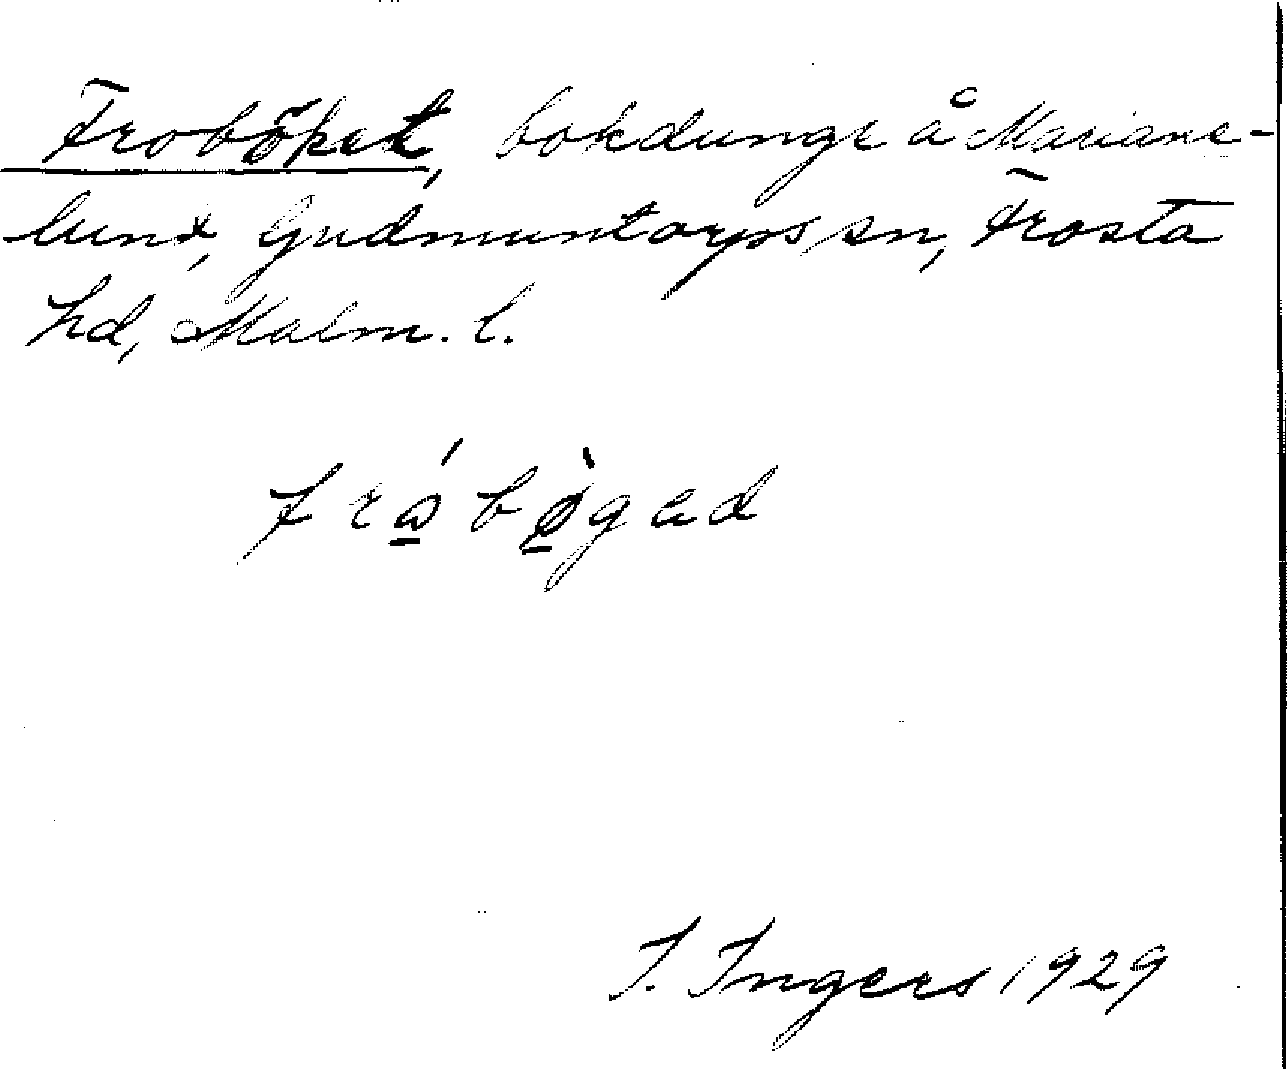 Froböket, bokdunge å Mariane-
lund, Gudmuntorps sn, Frosta
hd, Malm. l.
frǻbø̀gad
I. Ingers 1929